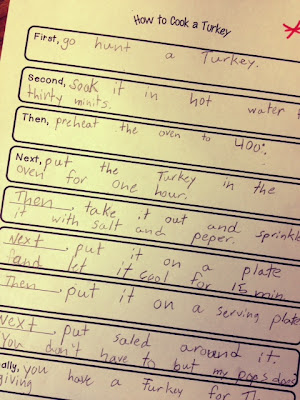 How to Cook a Turkey
First, go hunt a Turkey.
Second, Soak it in hot water
thirty minits.
Then, preheat the oven to 400°.
Next, put the Turkey in the
oven for one hour.
Then, take it out and sprinkle
it with salt and peper.
Next put it on a plate
and let it cool for 15 min
Then, put it on a serving plate
Next, put saled around it.
You don't have to but my pops does
ally, you have a Turkey for Th
giving